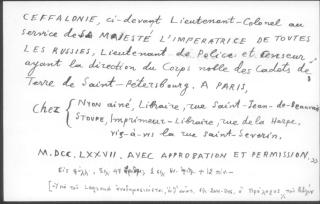 CEFFALONIE, ci-devant Lieutenant-Colonel au
service de SA MAJESTÉ L'IMPERATRICE DE TOUTES
LES RUSSIES, Lieutenant de Police et Censeur
ayant la direction du Corps noble des Cadets de
Terre de Saint-Pétersbourg. A PARIS,
Chez { NYON aîné, Libraire, rue Saint-Jean-de-Beauvais
STOUPE, Imprimeur-Libraire, rue de la Harpe,
vis-à-vis la rue Saint-Severin.
M.DCC.LXXVII. AVEC APPROBATION ET PERMISSION.
Εἰς φύλλ.
[Ὑπὸ τοῦ Legrand